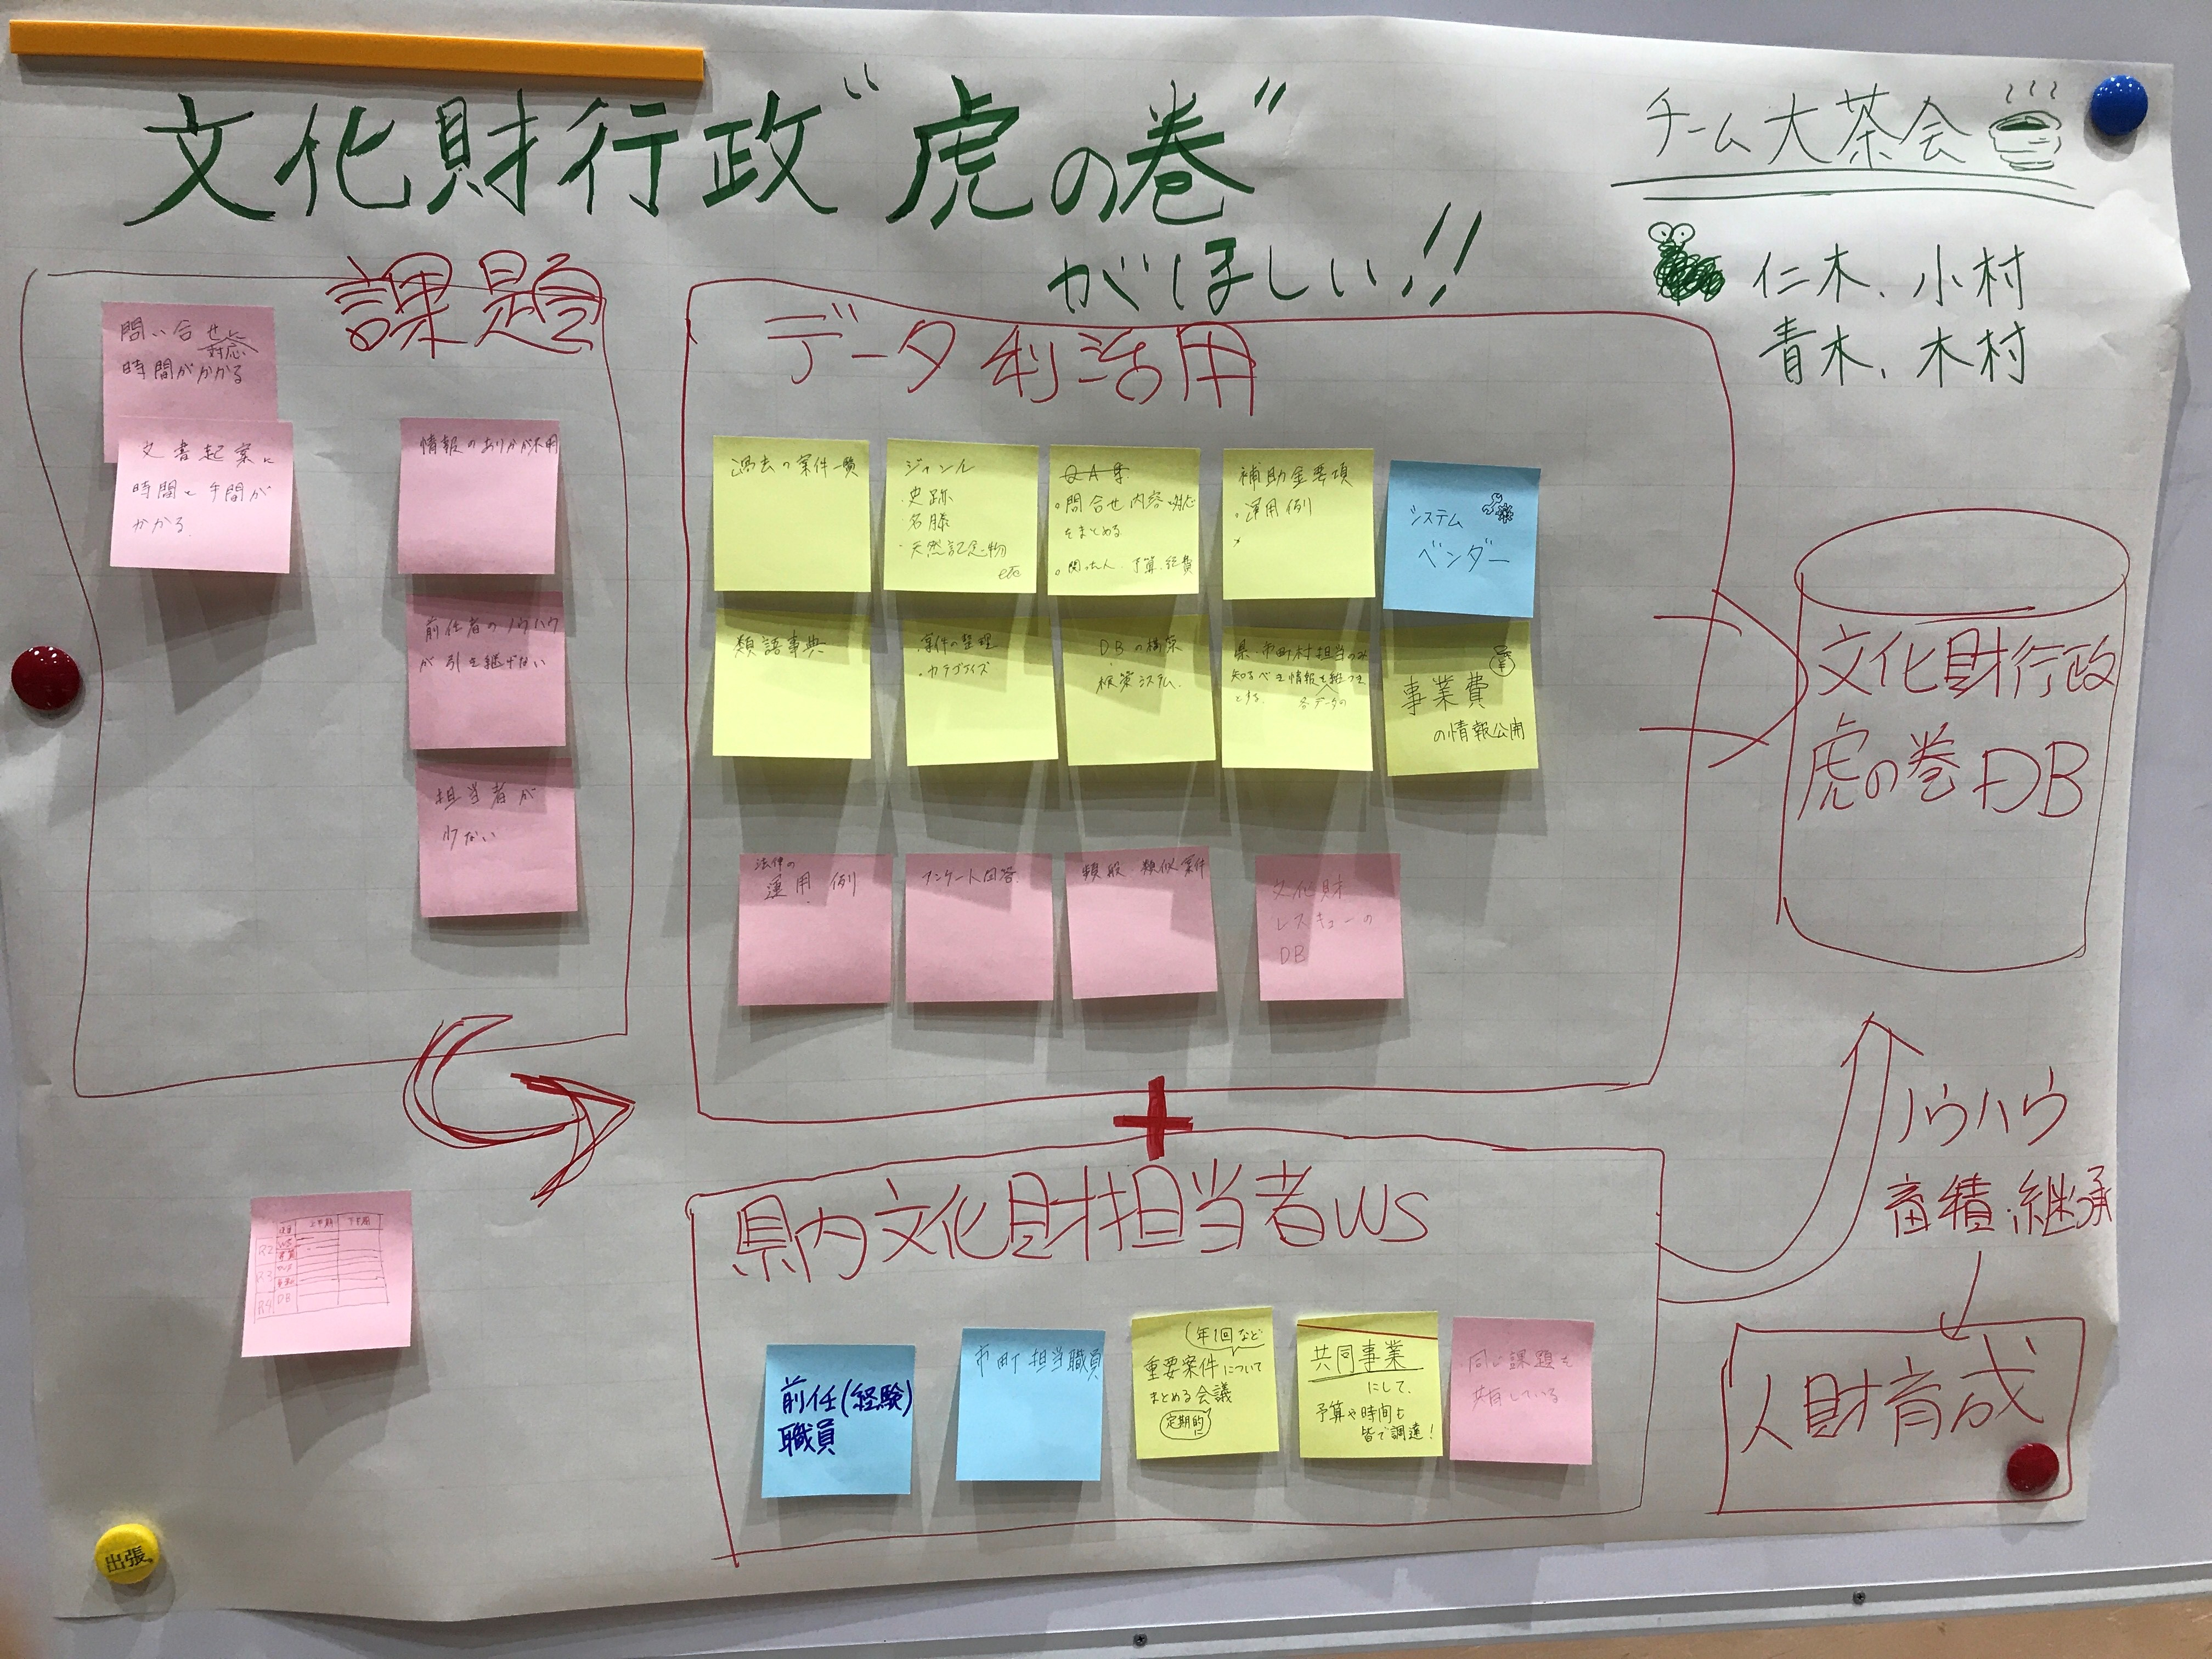 文化財行政"虎の巻"
がほしい!!
チーム大茶会
仁木、小村
青木、木村
課題
問い合せに
対応
時間がかかる
文書起案に
時間と手間が
かかる
情報のありかが不明
前任者のノウハウ
が引き継げない
担当者が
少ない
データ利活用
過去の案件一覧
ジャンル
・史跡
・名勝
・天然記念物
etc
QA集
・問合せ内容・対応
をまとめる
予算、経費
補助金要項
・運用例
システム
ベンダー
類語事典
・案件の整理
・カテゴライズ
DBの構築
・検索システム
県・市町村担当のみ
知るべき情報を
とする
各データの
事業費
の情報公開
法律の
運用例
アンケート回答
類似案件
文化財
レスキューの
DB
文化財行政
虎の巻DB
+
県内文化財担当者WS
前任(経験)
職員
市町担当職員
年1回など
重要案件について
まとめる会議
定期的に
共同事業
にして、
予算や時間も
皆で調達!
同じ課題を
共有している
ノウハウ
蓄積・継承
人財育成
上半期 下半期
R2
WS
R3
R4
DB
出張